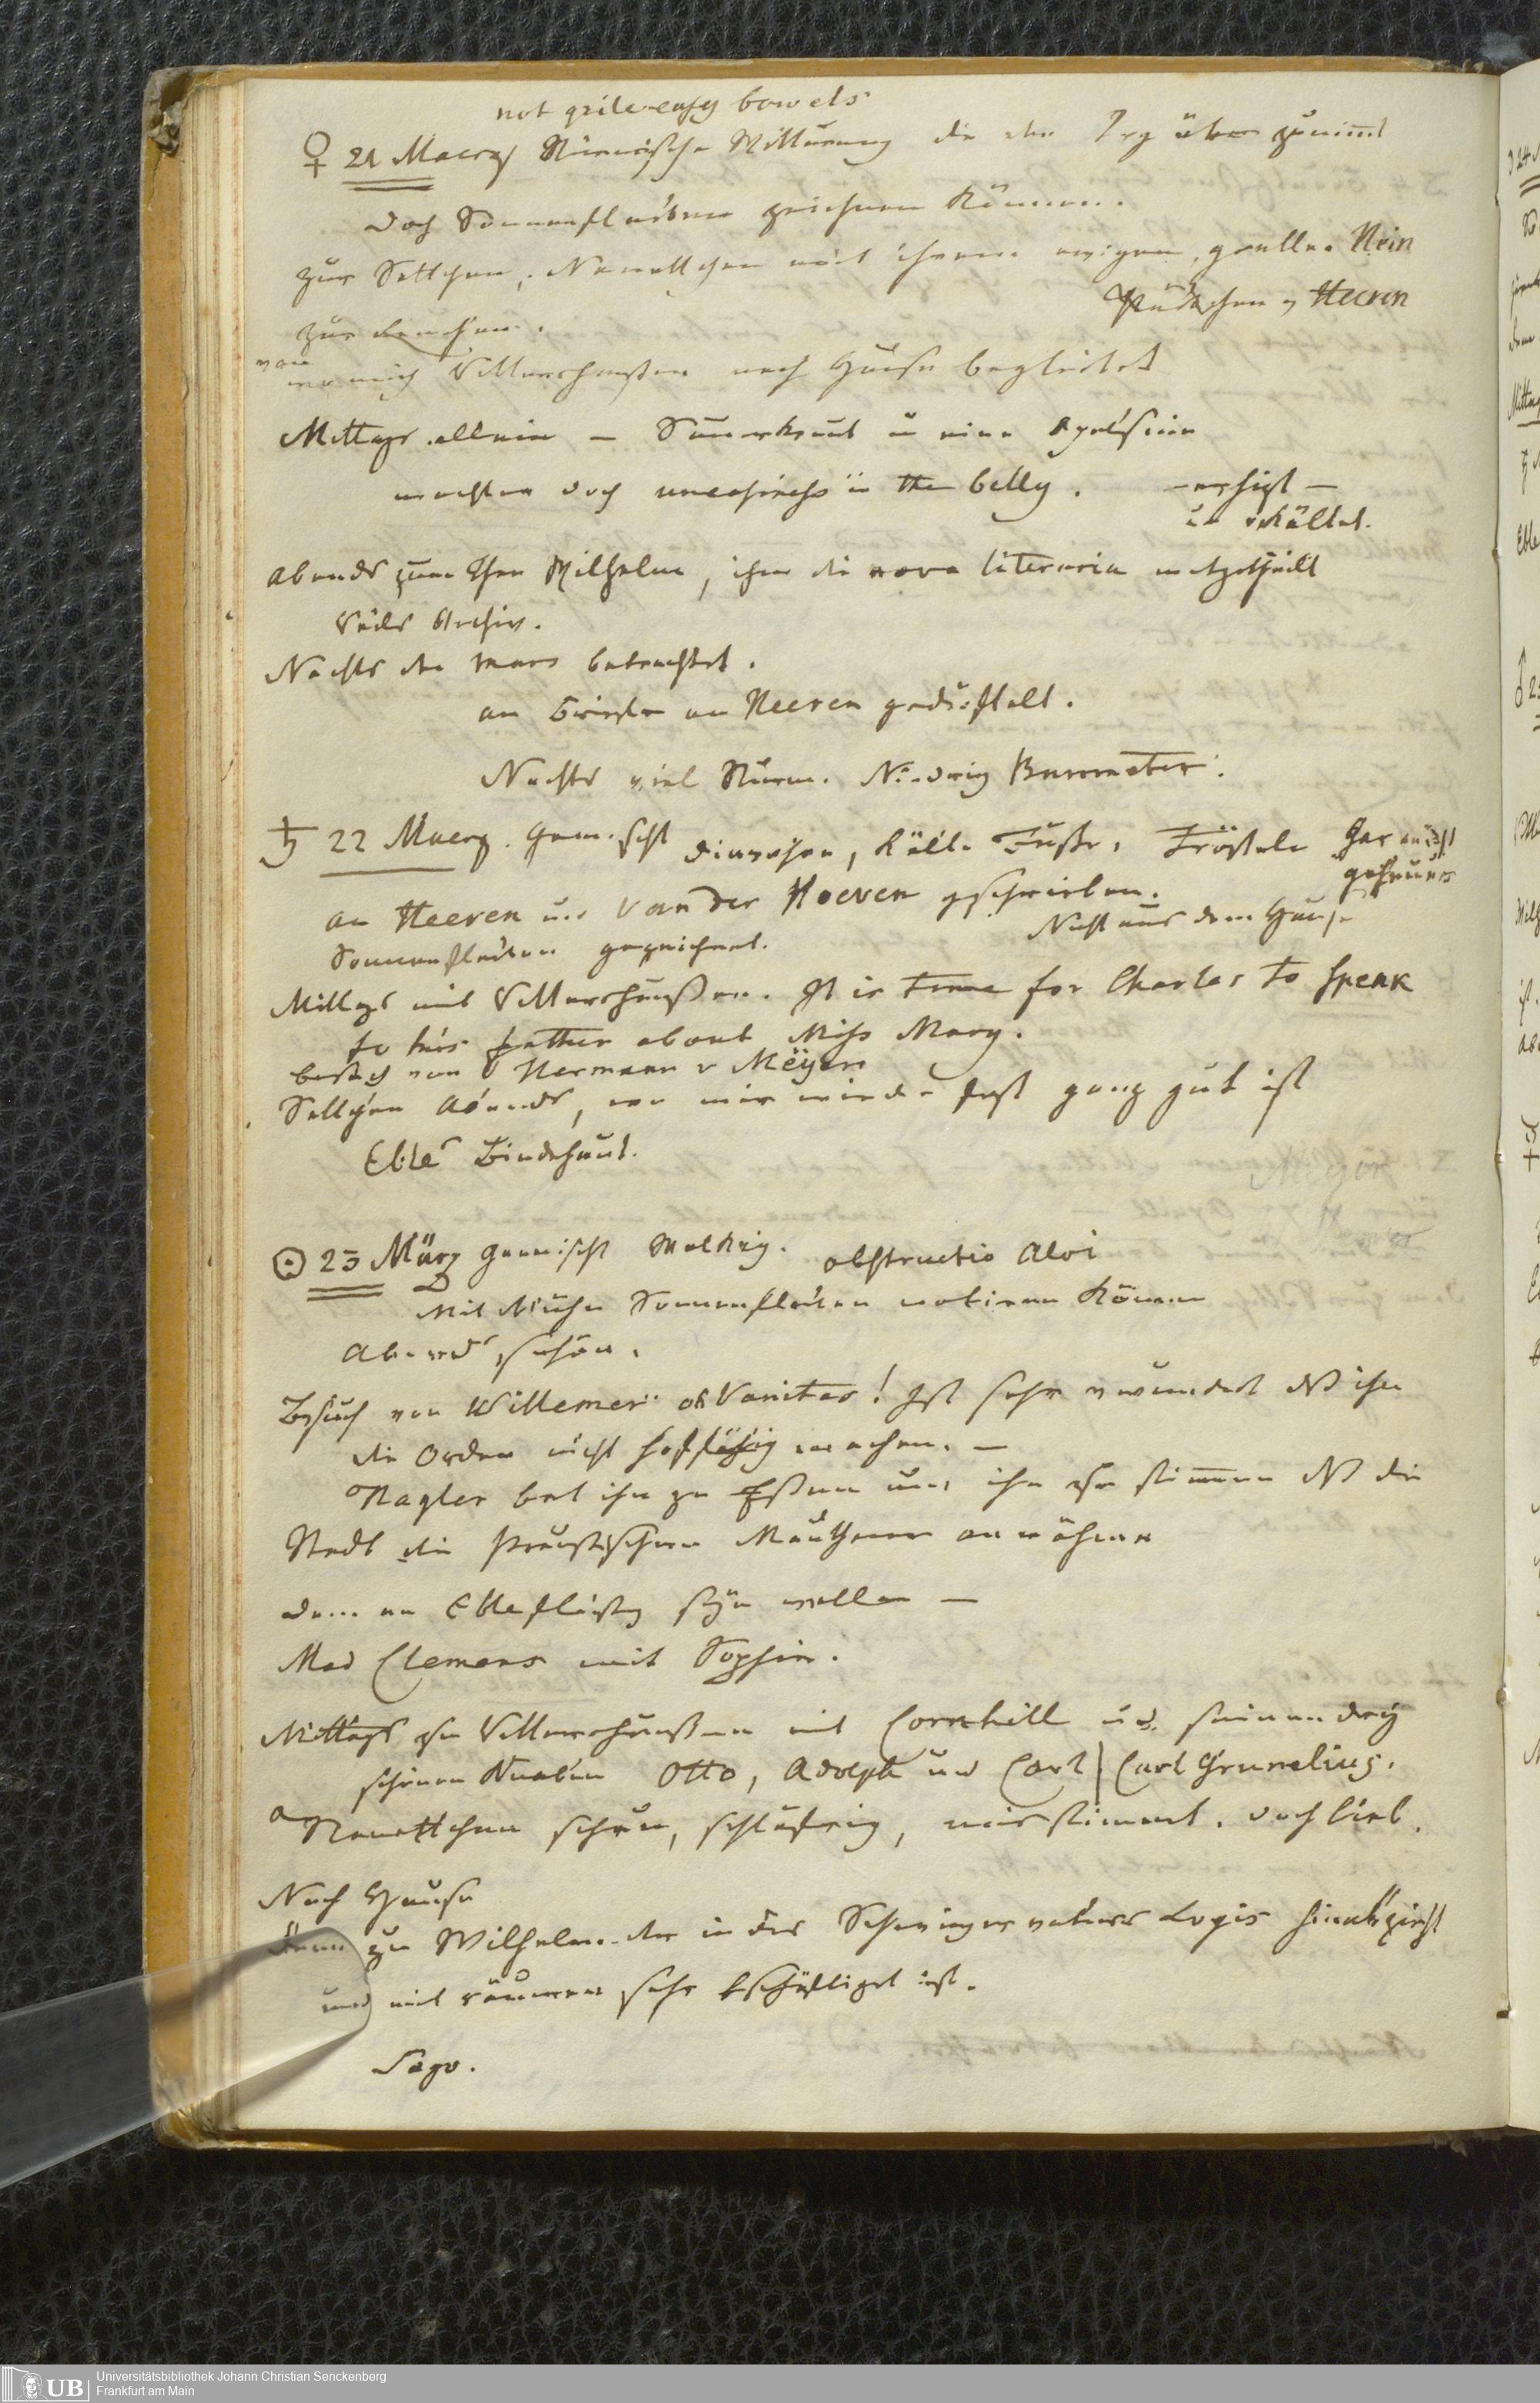 not quite easy bowels
♀ 21 Maerz Stürmische Witterung die den Tag über zunimmt
doch Sonnenflecken zeichnen können.
zur Settchen, Nanettchen mit ihrem ewigen, Nein
Päckchen v Heeren
zur
von mich Villmershaußen nach Hause begleitet
Mittags allein – Sauerkraut u eine Apelsine
machten doch uneasiness in the belly. – erhizt –
u erkältet.
Abends zum Thee Wilhelm, ihm die nova literaria mitgetheilt
Archiv.
Nachts den Mars betrachtet.
an Briefe an Heeren
Nachts viel Sturm. Niedrig Barometer.
♄ 22 Maerz. Gemischt Diarrhöe, kalte Füße, Frösteln Gar nicht
geheuer
an Heeren und Van der Hoeven geschrieben.
Nicht aus dem Hause
Sonnenflecken gezeichnet.
Mittags mit Villmershaußen. It is time for Charles to speak
to his father about Miss Mary.
besuch von Hermann v Meÿer
Settchen Abends, wo mir wieder fast ganz gut ist
Eble Bindehaut.
☉ 23 März Gemischt Wolkig. obstructio Alvi
Mit Mühe Sonnenflecken notiren können
Abend schön.
Besuch von Willemer oh Vanitas! Ist sehr verwundert dß ihn
die Orden nicht hoffähig machen. –
Nagler bat ihn zu Eßen um ihn zu stimmen dß die
Stadt die Preussischen Mauthen annähme
Mad Clemens mit Sophie.
Mittags zu Villmershaußen mit Cornhill und seinen drey
schönen Knaben Otto, Adolph und Carl | Carl Grunelius.
Nanettchen schön, schläfrig, misstimmt. doch lieb.
Nach Hause
dann zu Wilhelm der in der Schwiegervaters Logis hinabzieht
und mit räumen sehr beschäftiget ist.
Sago.
Universitätsbibliothek Johann Christian Senckenberg
Frankfurt am Main
UB